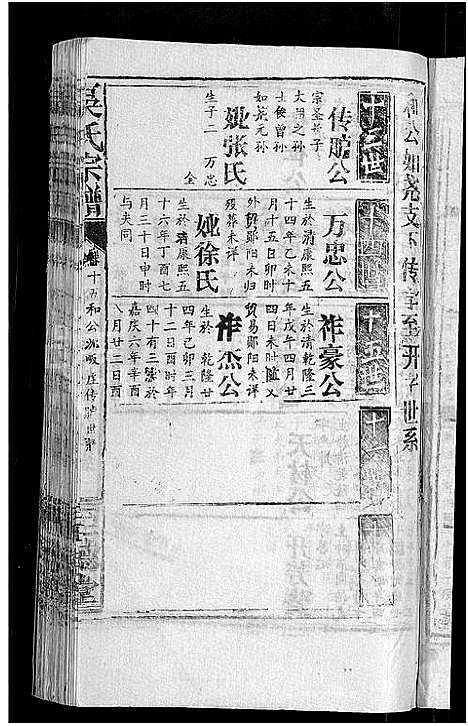 和公如尧支下传字至开字世系
十三世
传舵公
宗圣长子
大用之孙
士俊曾孙
如尧元孙
妣张氏
生子二 万忠
全
十四世
万忠公
生於清康熙五
十四年乙未十
月十五日卯时
外贸郧阳未归
殁葬未详
妣徐氏
生於清康熙五
十六年丁酉七
月三十日申时
与夫同
十五世
祚豪公
生於清乾隆三
年戊午四月廿
四日未时随父
贸易郧阳未详
祚杰公
生於乾隆廿
四年己卯三月
十二日酉时年
四十有三发於
嘉庆六年辛酉
八月廿二日酉
十六世
吴氏宗谱
卷十五和公派畈庄传
世系